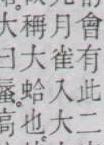 會有此二
月雀入大
稱大蛤也
大曰蜃高